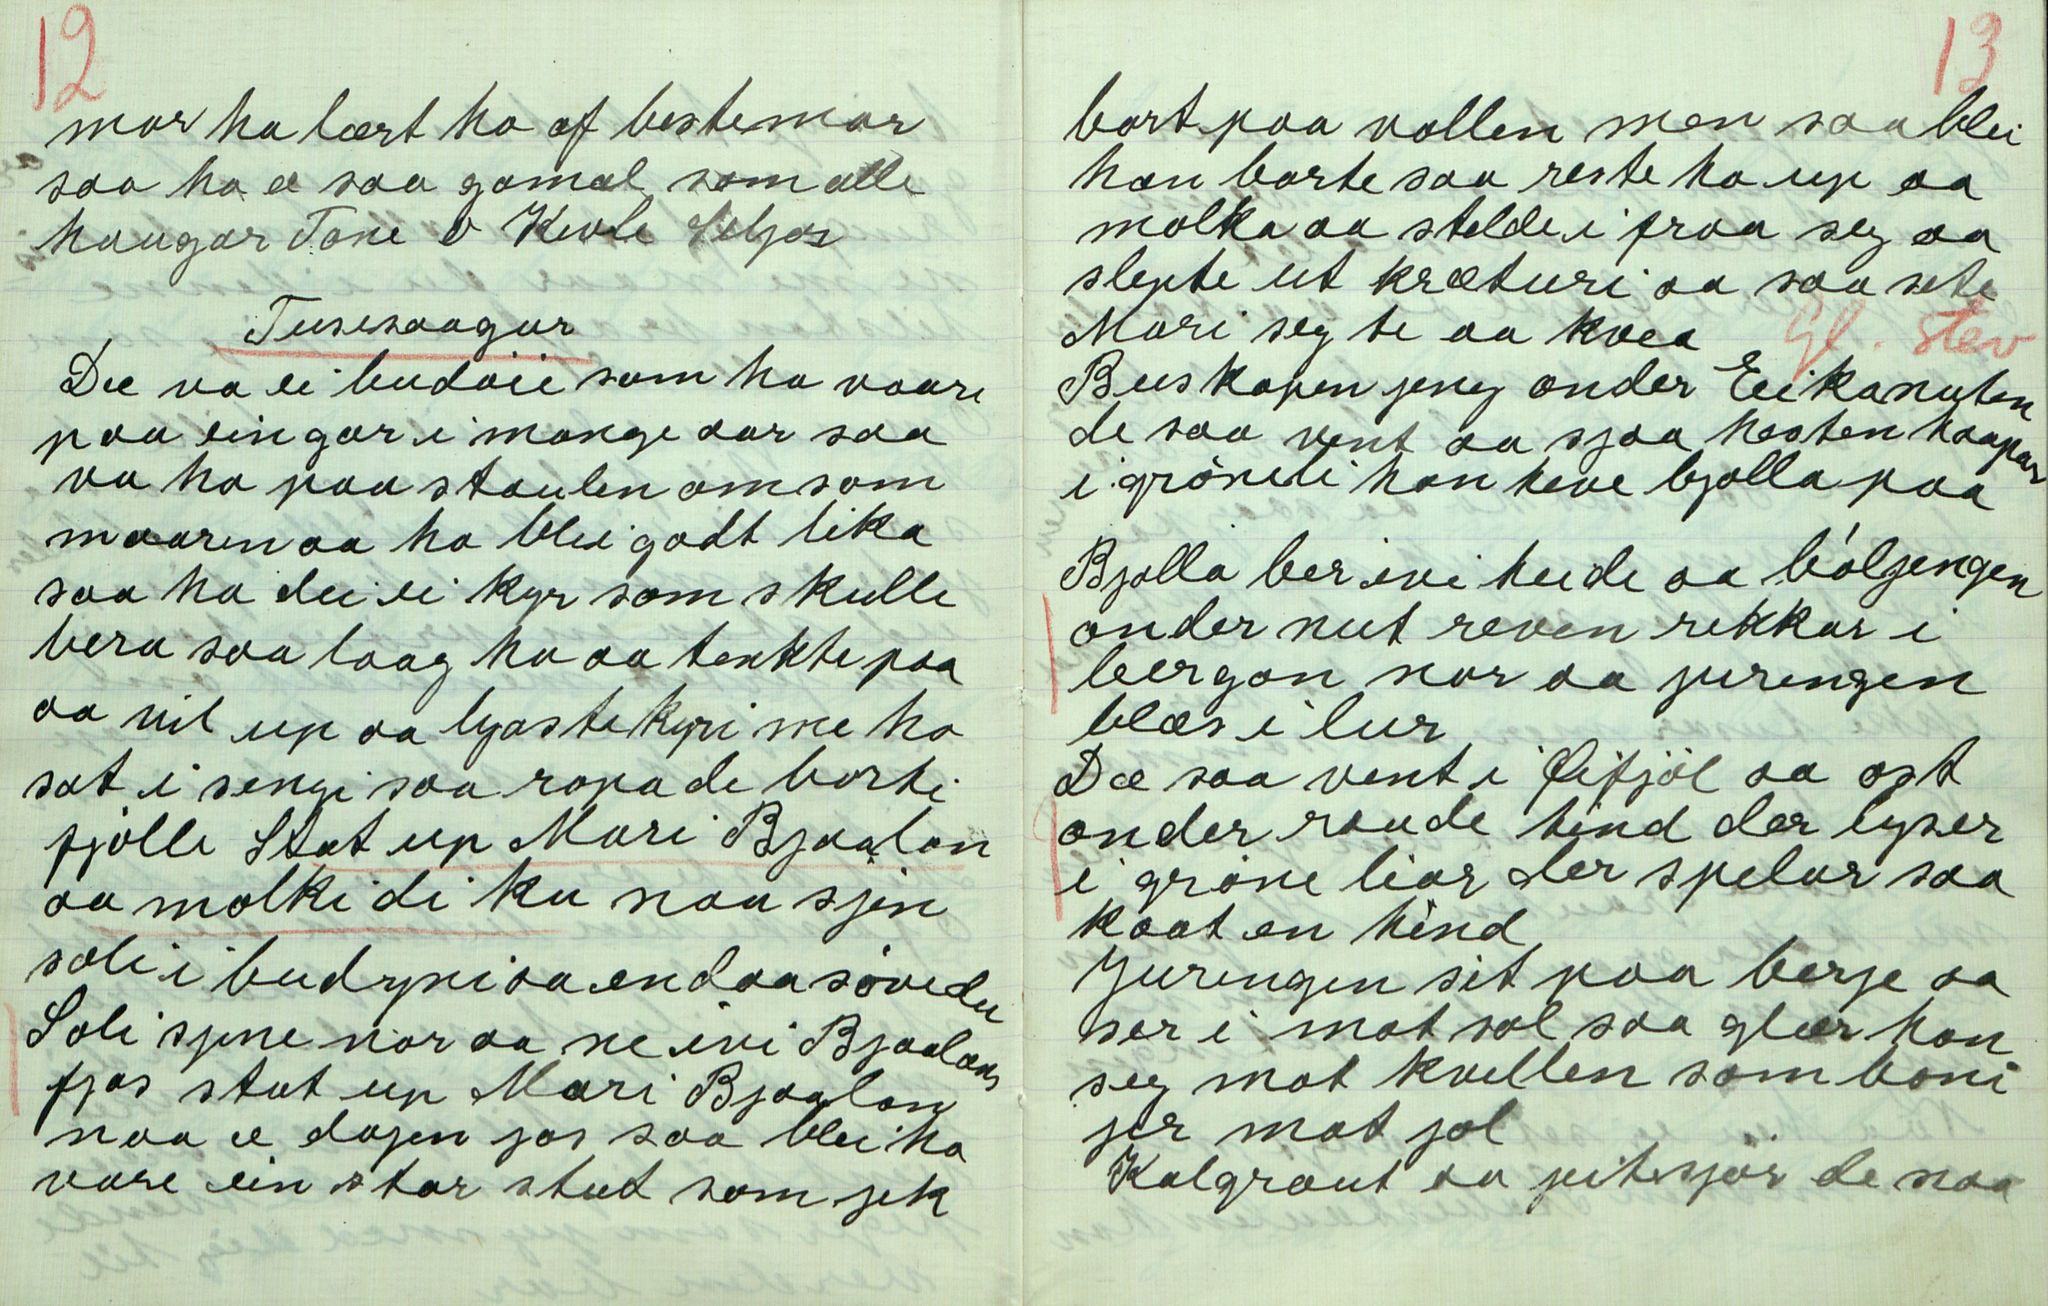 12
mor ha lært ho af bestemor
saa ho æ saa gamal som alle
haugar Tone O Kevle Seljos
Tusesaagur
Dee va ei budøie som ho vaare
paa ein gar i mange aar saa
va ho paa staulen om som
maaren aa ho blei godt lika
saa ha dei ei kyr som skulle
bera saa laag ho aa tenkte paa
aa vil up aa lyaste kyri me ho
sat i sengi saa ropa de borti
fjölle Stat up Mari Bjaalan
aa molki di ku naa sjin
soli i budryni aa endaa söve du
Soli sjine nor aa ne ivi Bjaalans
fjos stat up Mari Bjaalan
naa æ dagen jos saa blei ho
vare ein stor stud som jek
13
bort paa vollen men saa blei
han borte saa reste ho up aa
molka aa stelde i fraa seg aa
slepte ut kræturi aa saa sete
Mari seg te aa kvea
Gl. stev
Buskapen jeng onder Eikanuten
de saa vent aa sjaa hesten haapar
i gröneli han heve bjolla paa
Bjolla ber ivi heide aa bóljengen
onder nut reven rekkar i
bergan nor aa jurengen
blæs i lur
Dæ saa vent i Øifjöl aa ost
onder raude tind der lyser
i gröne liar der spelar saa
kaat en hind
Jurengen sit paa berje aa
ser i mot sol saa glær han
seg mot kvellen som boni
jer mot jol
Kolgraut aa jeitesjör de naa